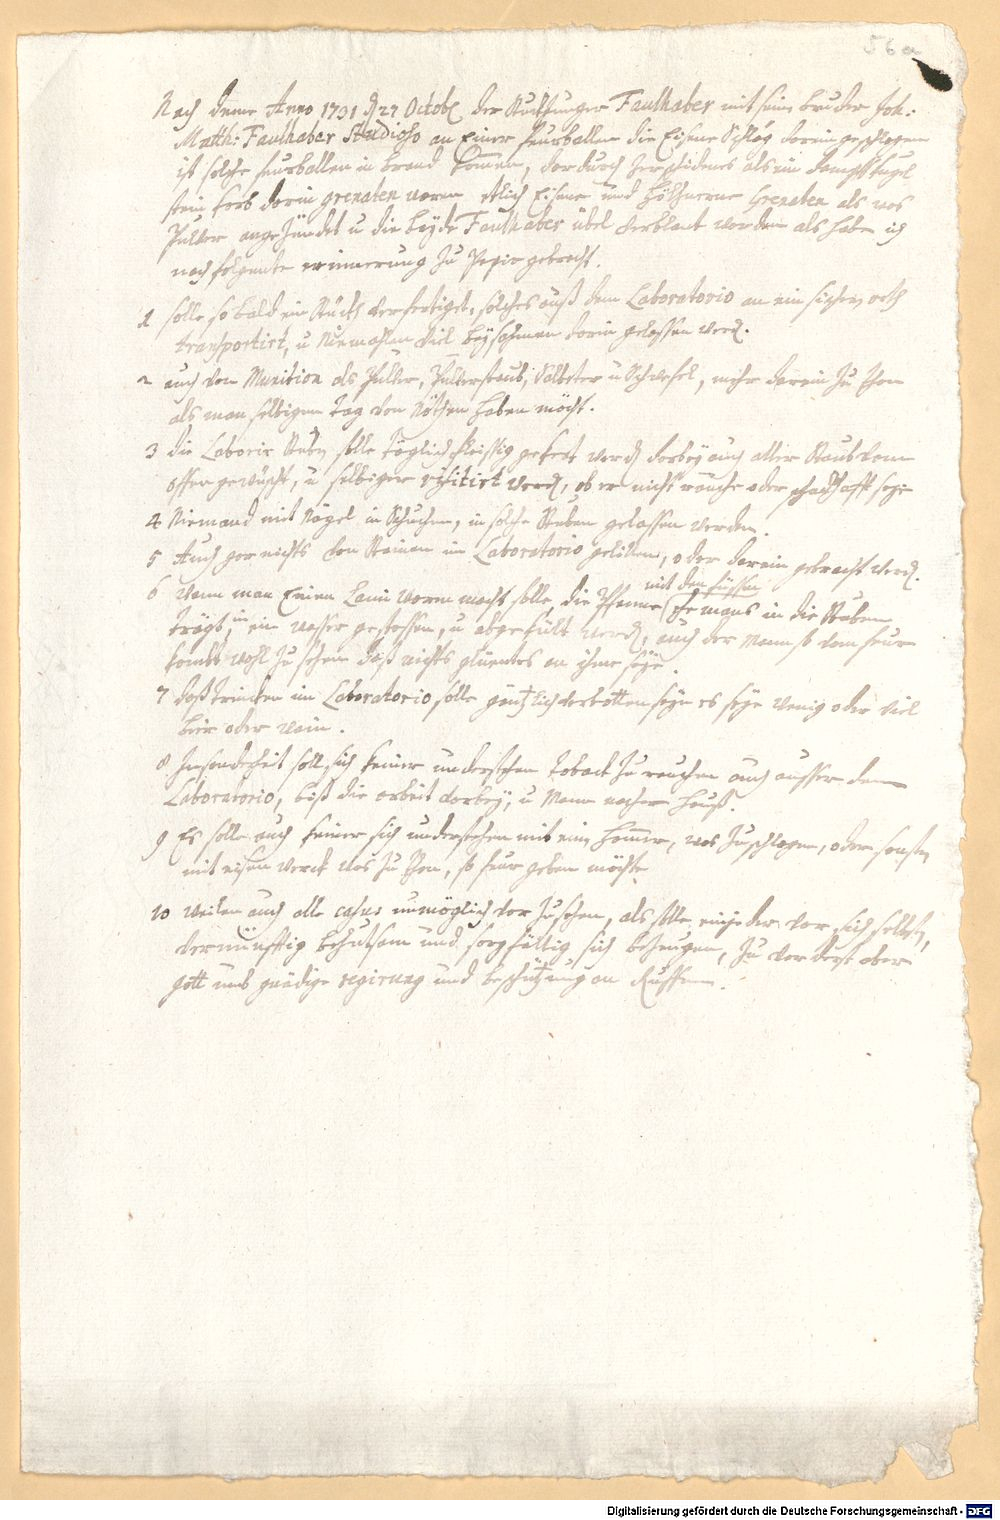 56a
Nach deme Anno 1731 d 27 Octobr der Stuckjunger Faulhaber mit seim bruder Joh:
Matth: Faulhaber Studioso an Einer feurballen die Eisene Schläg darein geschlagen
ist solche feurballen in brand kommen, dardurch als ein dampff kugl
darin grenaten waren etlich Eisene und höltzerne Grenaten als was
Pulver angezündet u die beyde Faulhaber übel verbrant worden als habe ich
nachfolgente erinnerung zu Papir gebracht.
1 solle so bald ein Stuckh verfertiget, solches auß dem Laboratorio an ein sichern orth
transportirt, u Niemahlen viel beysahmen darin gelassen werd.
2 auch von Munition als Pulver, Pulverstaub, Salbeter u Schwefel, mehr darein zu thon
als man selbigen tag von Nöthen haben möcht.
3 die Laborir Stuben solle täglich fleissig gekert werd, darbey auch aller Staub vom
offen gewischt, u selbiger visitirt werd, ob er nicht rauche oder schadhafft seye
4 Niemand mit Nägel in Schuchen, in solche Stuben gelassen werden.
5 Auch gar nichts von Steinen im Laboratorio gelitten, oder darein gebracht werd.
6 Wann man Einen Laim warm macht solle, die Pfanne mit den füssen ehe mans in die Stuben
trägt, in ein wasser gestossen, u abgekült werd, auch der Mann so vom feur
kombt wohl zu sehen daß nichts gluentes an ihme seye.
7 daß trincken im Laboratorio solle gäntzlich verbotten seyn es seye wenig oder viel
bier oder wein.
8 Insonderheit soll sich keiner understehen Toback zu rauchen auch ausser dem
Laboratorio, biß die arbeit vorbey, u Mann nacher hauß.
9 Es solle auch keiner sich understehen mit eim hamer, was zuschlagen, oder sonsten
mit eisen werck was zu thon, so feur geben möchte
10 Weilen auch alle casus unmöglich vor zusehen, als solle ein jeder vor sich selbsten,
vernünfftig behutsam und sorgfältig sich bezeugen, zu vorderst aber
Gott umb gnädige regirung und beschützung an Ruffen.
Digitalisierung gefördert durch die Deutsche Forschungsgemeinschaft - DFG